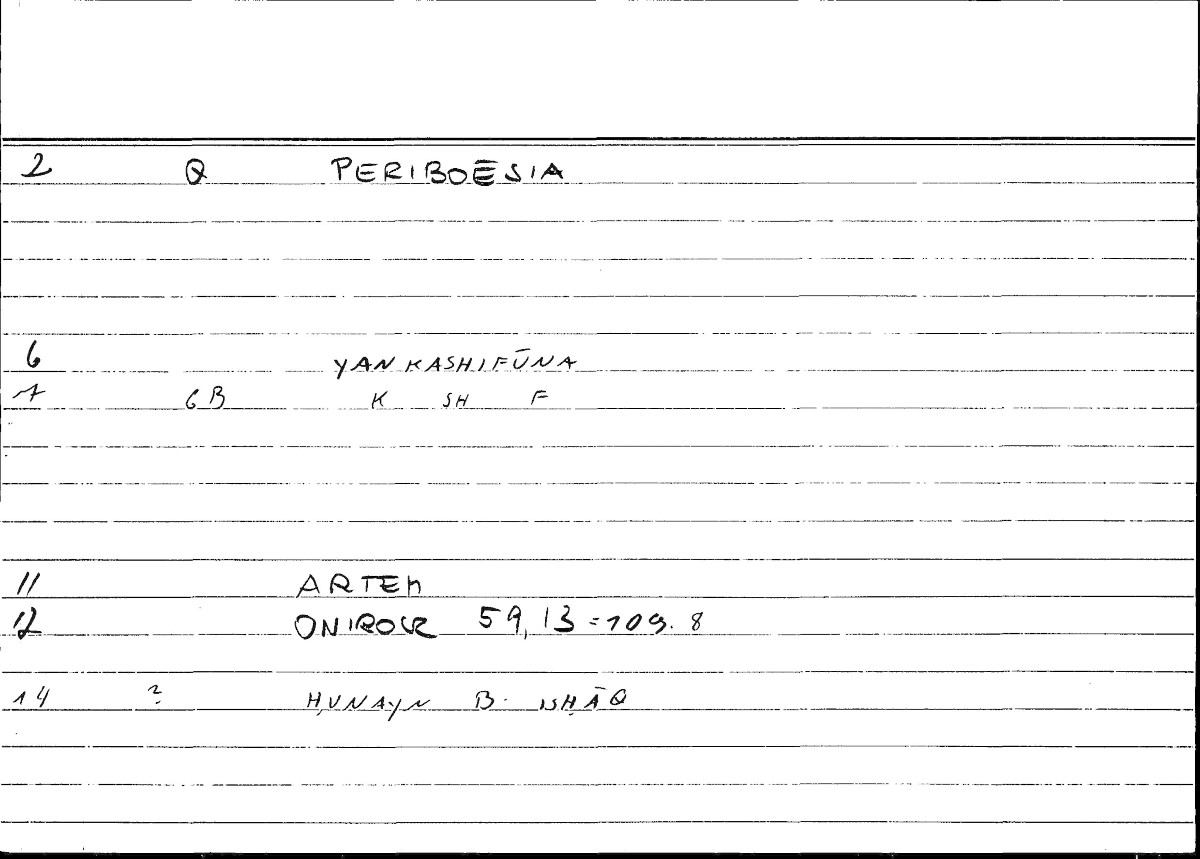 2 Q PERIBOĒSIA
6 YANKASHIFŪNA
7 6B K SH F
11 ARTEM
12 ONIROCR 59,13=109.8
14 ? ḤUNAYN B. ISḤĀQ